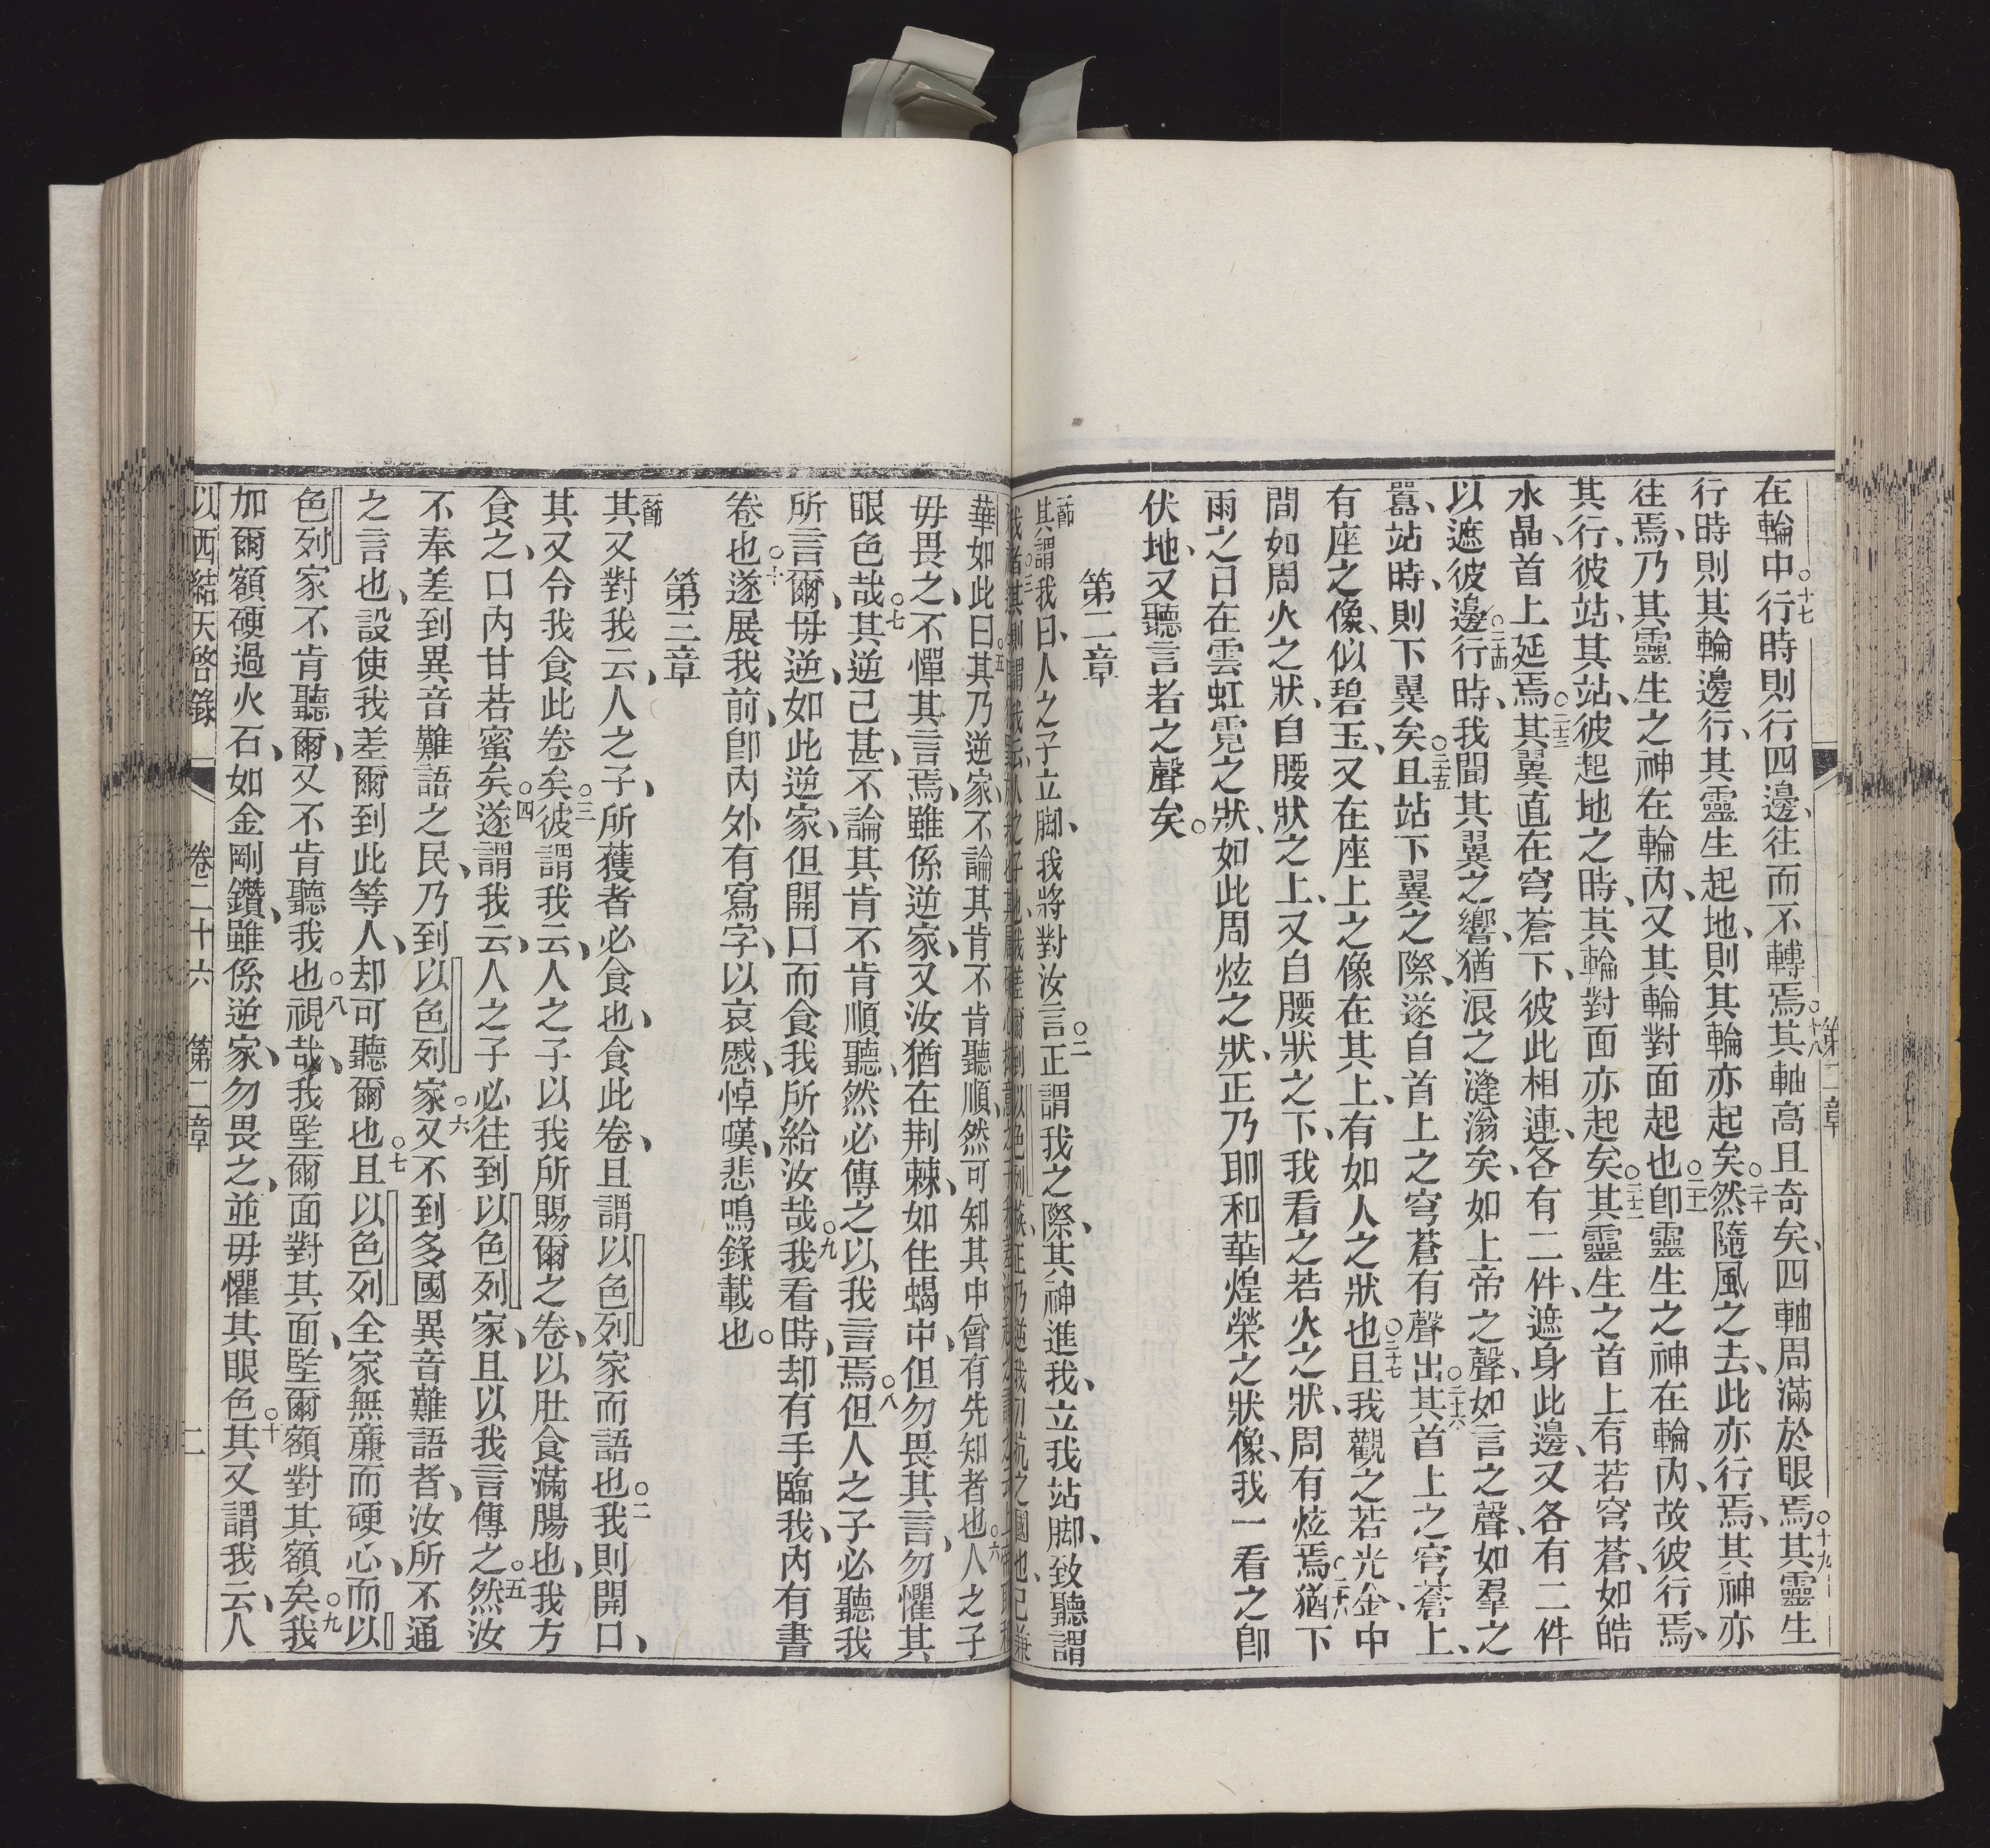 在輪中○十七行時則行四邊、往而不轉焉○十八其軸高且奇矣、四軸周滿於眼焉○十九其靈生
行時則其輪邊行、其靈生起地、則其輪亦起矣○二十然隨風之去、此亦行焉、其神亦
往焉、乃其靈生之神在輪內、又其輪對面起也○二十一卽靈生之神在輪內、故彼行焉、
其行、彼站、其站、彼起地之時、其輪對面亦起矣○二十二其靈生之首上有若穹蒼、如皓
水晶、首上延焉○二十三其翼直在穹蒼下、彼此相連、各有二件、遮身此邊、又各有二件
以遮彼邊○二十四行時、我聞其翼之響、猶浪之漨滃矣、如上帝之聲、如言之聲、如羣之
囂、站時、則下翼矣○二十五且站下翼之際、遂自首上之穹蒼有聲出○二十六其首上之穹蒼上、
有座之像、似碧玉、又在座上之像在其上、有如人之狀也○二十七且我觀之若光金、中
間如周火之狀、自腰狀之上、又自腰狀之下、我看之若火之狀、周有炫焉○二十八猶下
雨之日在雲虹霓之狀、如此周炫之狀、正乃耶和華煌榮之狀像、我一看之卽
伏地、又聽言者之聲矣○
第二章
一節其謂我曰、人之子立脚、我將對汝言○二正謂我之際、其神進我、立我站脚、致聽謂
華如此曰○五其乃逆家、不論其肯不肯聽順、然可知其中曾有先知者也○六人之子
毋畏之、不憚其言焉、雖係逆家、又汝猶在荆棘、如住蝎中、但勿畏其言、勿懼其
眼色哉○七其逆己甚、不論其肯不肯順聽、然必傳之以我言焉○八但人之子必聽我
所言爾、毋逆、如此逆家、但開口而食我所給汝哉○九我看時、却有手臨我、內有書
卷也○十遂展我前、卽內外有寫字、以哀慼、悼嘆、悲鳴錄載也○
第三章
一節其又對我云、人之子、所獲者必食也、食此卷、且謂以色列家而語也○二我則開口、
其又令我食此卷矣○三彼謂我云、人之子以我所賜爾之卷、以肚食滿腸也、我方
食之、口內甘若蜜矣○四遂謂我云、人之子必往到以色列家、且以我言傳之○五然汝
不奉差到異音難語之民、乃到以色列家○六又不到多國異音難語者、汝所不通
之言也、設使我差爾到此等人、却可聽爾也○七且以色列全家無亷而硬心、而以
色列家不肯聽爾、又不肯聽我也○八視哉、我堅爾面對其面、堅爾額對其額矣○九我
加爾額硬過火石、如金剛鑽、雖係逆家、勿畏之、並毋懼其眼色○十其又謂我云、人
以西結天啓錄　卷二十六　第二章　二